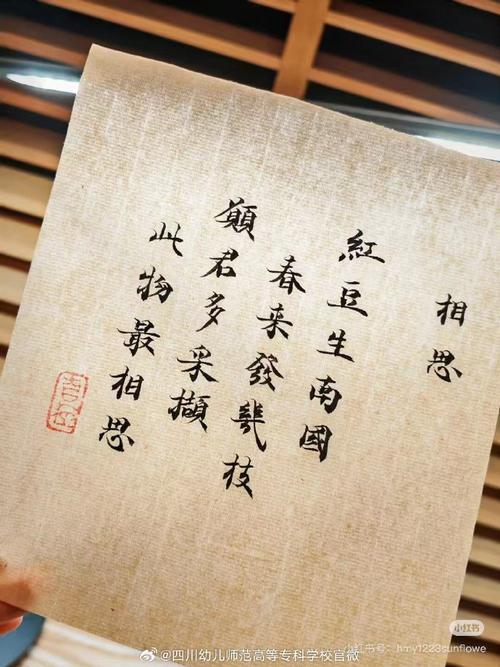 相思
紅豆生南國
春来發幾枝
願君多采擷
此物最相思
小红书
小红书号：hmy1223sunflowe
@四川幼儿师范高等专科学校官微